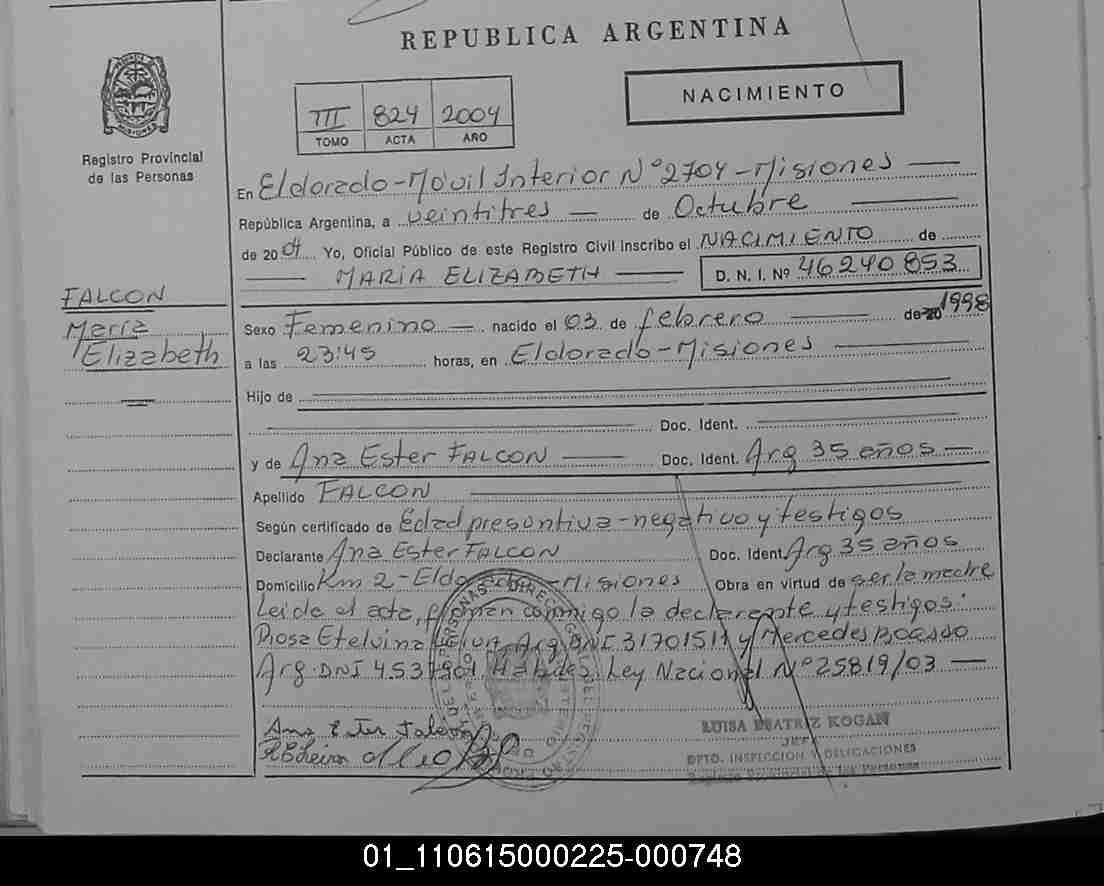 REPUBLICA ARGENTINA
NACIMIENTO
III 824 2004
TOMO ACTA AÑO
MISIONES
Registro Provincial
de las Personas
En Eldorado-Móvil Interior Nº 2704-Misiones
República Argentina, a veintitres de Octubre
de 2004 Yo, Oficial Público de este Registro Civil inscribo el NACIMIENTO de
MARIA ELIZABETH D. N. I. Nº 46240853
FALCON
María
Elizabeth
Sexo Femenino nacido el 03 de febrero de 20 1998
a las 23:45 horas, en Eldorado-Misiones
Hijo de
Doc. Ident.
y de Ana Ester FALCON Doc. Ident. Arg 35 años
Apellido FALCON
Según certificado de Edad presuntiva-negativo y testigos
Declarante Ana Ester FALCON Doc. Ident. Arg 35 años
Domicilio Km 2-Eldorado-Misiones Obra en virtud de ser la madre
Leida el acta, firman conmigo la declarante y testigos:
Rosa Etelvina Arg DNI 31701511 y Mercedes BOGADO
Arg. DNI Ley Nacional Nº 25819/03
Ana Ester Falcon
LUISA BEATRIZ KOGAN
JEFE
DPTO. INSPECCION Y DELEGACIONES
Registro Provincial de las Personas
01_110615000225-000748